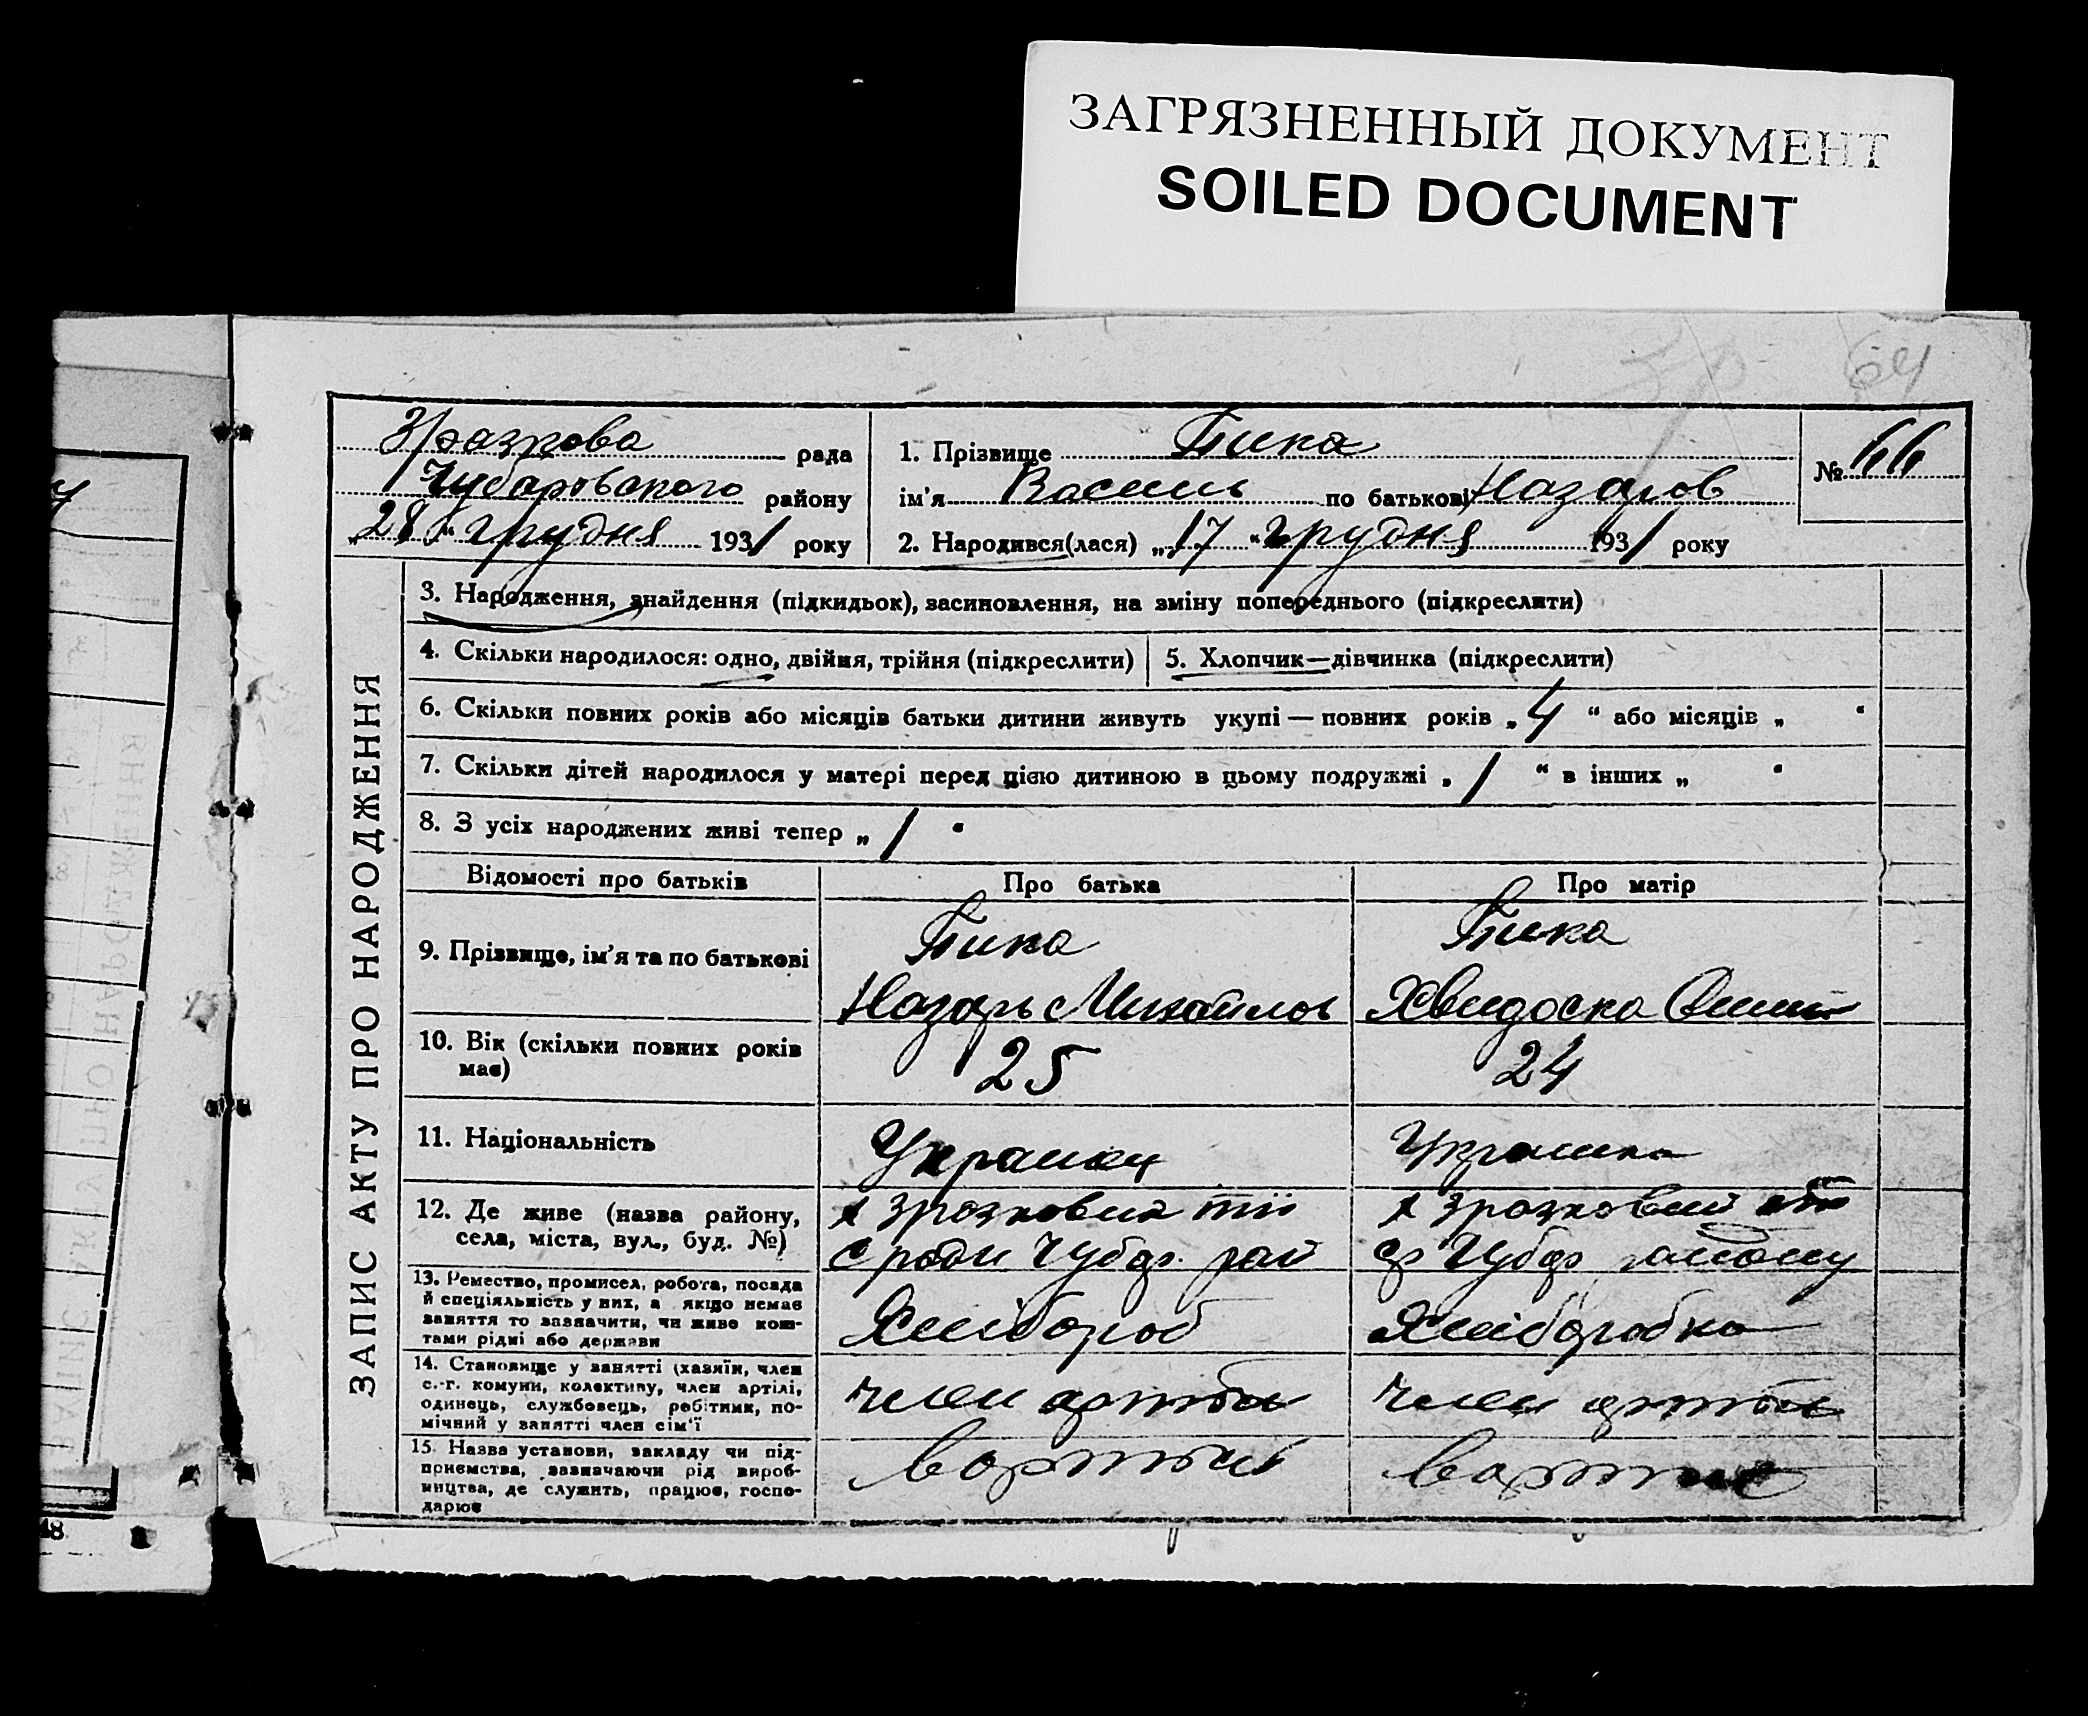 ЗАГРЯЗНЕННЫЙ ДОКУМЕНТ
SOILED DOCUMENT
64
Зразкова рада
Чубарівського району
„28“ грудня 1931 року
1. Прізвище Бика
ім’я Василь по батькові Назаров
2. Народився(лася) „17“ грудня 1931 року
№ 66
ЗАПИС АКТУ ПРО НАРОДЖЕННЯ
3. Народження, знайдення (підкидьок), засиновлення, на зміну попереднього (підкреслити)
4. Скільки народилося: одно, двійня, трійня (підкреслити)
5. Хлопчик—дівчинка (підкреслити)
6. Скільки повних років або місяців батьки дитини живуть укупі — повних років „4“ або місяців „ “
7. Скільки дітей народилося у матері перед цією дитиною в цьому подружжі „1“ в інших „ “
8. З усіх народжених живі тепер „1“
Відомості про батьків
Про батька
Про матір
9. Прізвище, ім’я та по батькові
Бика
Назарь Михайлов
Бика
Хвидоска
10. Вік (скільки повних років
має)
25
24
11. Національність
Украинц
Украинка
12. Де живе (назва району,
села, міста, вул., буд. №)
х Зразковий
с ради Чубар. рай
х Зразковий
Чубар
13. Ремество, промисел, робота, посада
й спеціяльність у них, а якщо немає
заняття то зазначити, чи живе кош-
тами рідні або держави
Хлібороб
Хліборобка
14. Становище у занятті (хазяїн, член
с.-г. комуни, колективу, член артілі,
одинець, службовець, робітник, по-
мічний у занятті член сім’ї
член артіли
член артіли
15. Назва установи, закладу чи під-
приємства, зазначаючи рід вироб-
ництва, де служить, працює, госпо-
дарює
в артіли
в артіли
48